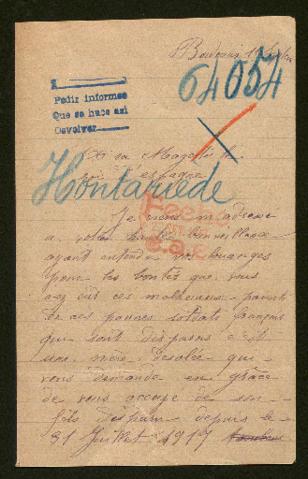 64054
Pedir informes
Que se hace asi
Devolver
A sa Magesté le
roi d'Espagne
Hontariede
Je viens m'adresse
a votre haute bienveillance
ayant entendu vos louanges
pour les bontés que vous
avez eus ces malheureux parents
de ces pauvres soldats français
qui sont disparus c'est
une mère désolée qui
vous demande en grâce
de vous occupe de son
fils disparu depuis le
31 Juillet 1917